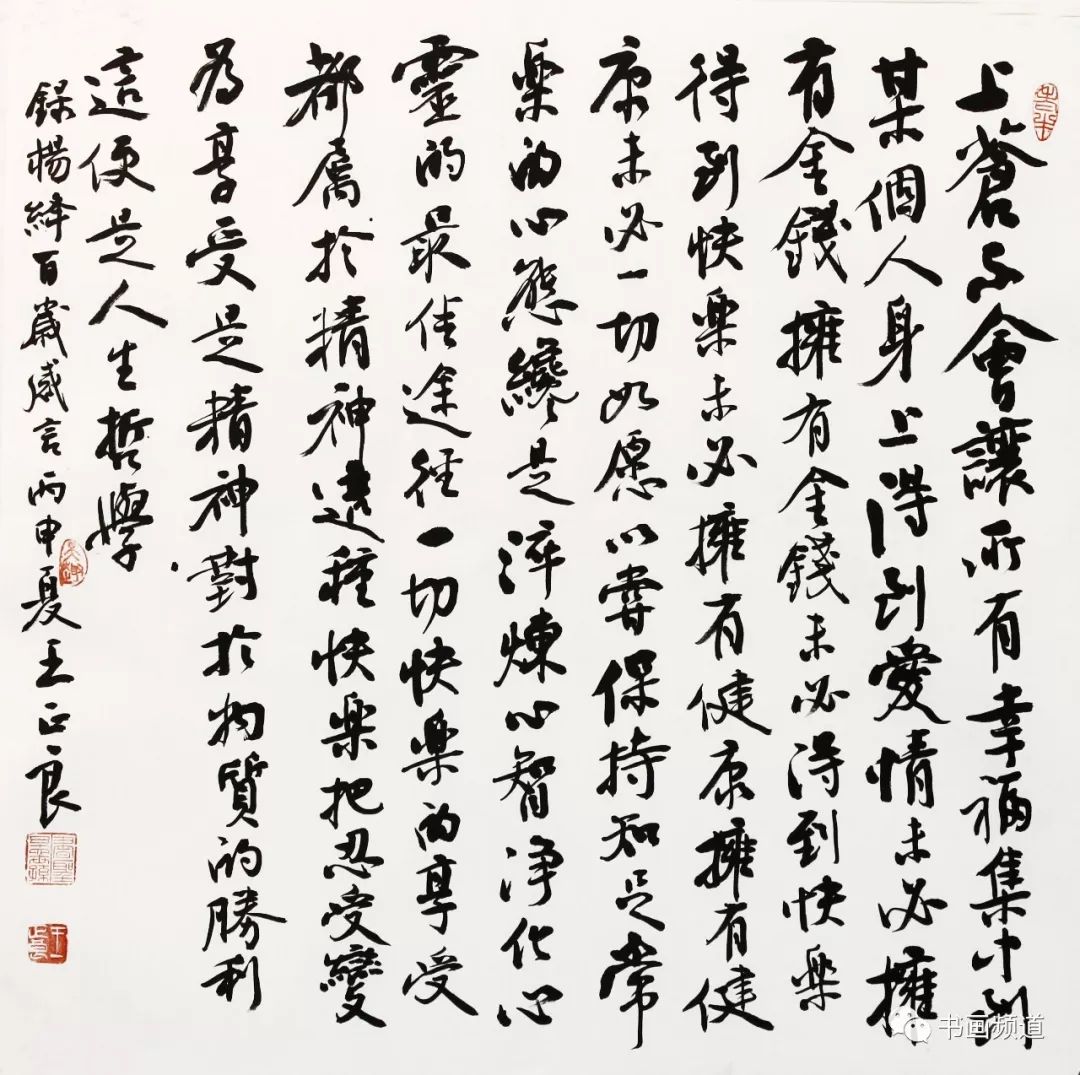 上蒼不會讓所有幸福集中到
某個人身上得到愛情未必擁
有金錢擁有金錢未必得到快樂
得到快樂未必擁有健康擁有健
康未必一切如愿以嘗保持知足常
樂的心態纔是淬煉心智净化心
靈的最佳途徑一切快樂的享受
都屬於精神這種快樂把忍受變
為享受是精神對於物質的勝利
這便是人生哲學
錄楊絳百歲感言丙申夏王正良
书画频道